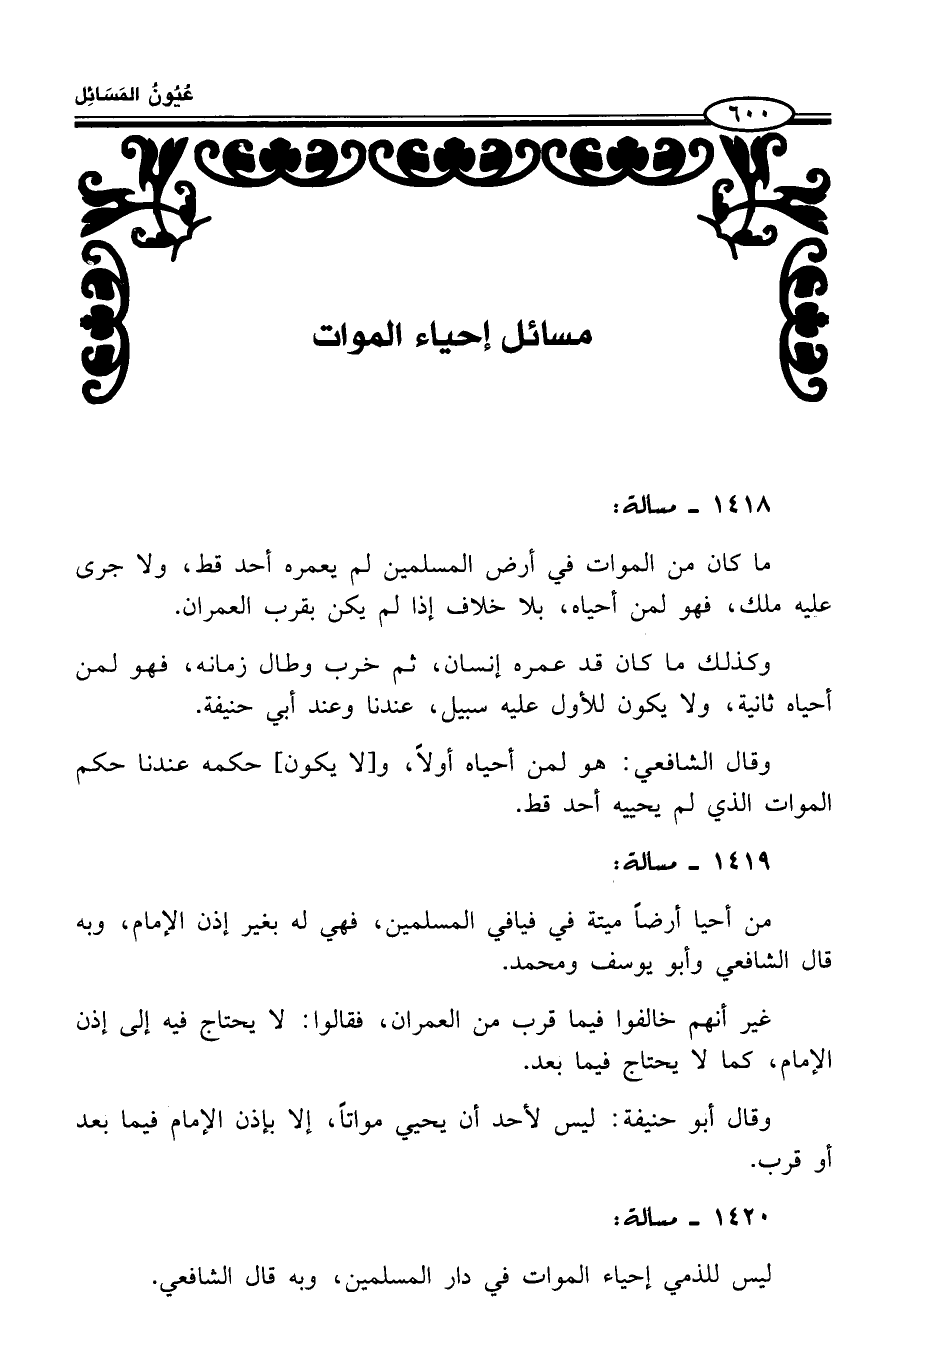 عُيُونُ المَسَائِل
٦٠٠
مسائل إحياء الموات
١٤١٨ ـ مسالة:
ما كان من الموات في أرض المسلمين لم يعمره أحد قط، ولا جرى
عليه ملك، فهو لمن أحياه، بلا خلاف إذا لم يكن بقرب العمران.
وكذلك ما كان قد عمره إنسان، ثم خرب وطال زمانه، فهو لمن
أحياه ثانية، ولا يكون للأول عليه سبيل، عندنا وعند أبي حنيفة.
وقال الشافعي: هو لمن أحياه أولاً، و[لا يكون] حكمه عندنا حكم
الموات الذي لم يحييه أحد قط.
١٤١٩ ـ مسالة:
من أحيا أرضاً ميتة في فيافي المسلمين، فهي له بغير إذن الإمام، وبه
قال الشافعي وأبو يوسف ومحمد.
غير أنهم خالفوا فيما قرب من العمران، فقالوا: لا يحتاج فيه إلى إذن
الإمام، كما لا يحتاج فيما بعد.
وقال أبو حنيفة: ليس لأحد أن يحيي مواتاً، إلا بإذن الإمام فيما بعد
أو قرب.
١٤٢٠ ـ مسالة:
ليس للذمي إحياء الموات في دار المسلمين، وبه قال الشافعي.